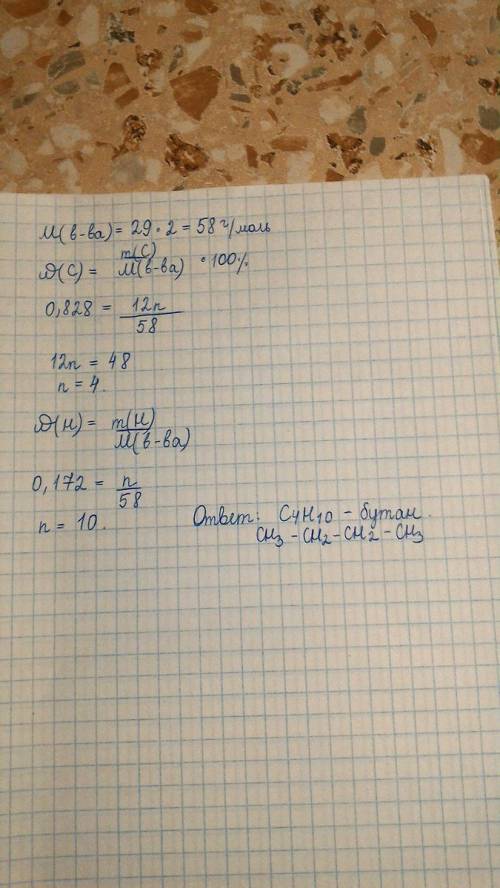 M(в-ва) = 29 * 2 = 58 г/моль
ω(C) = m(C) / M(в-ва) * 100%
0,828 = 12n / 58
12n = 48
n = 4.
ω(H) = m(H) / M(в-ва)
0,172 = n / 58
n = 10.
Ответ: C4H10 - бутан.
CH3 - CH2 - CH2 - CH3